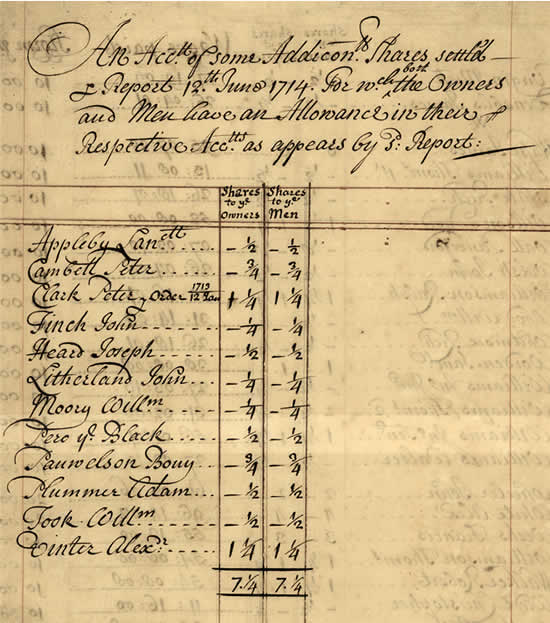 An Acctt. of some Addicontts. Shares settl'd
⅌ Report 12th. June 1714. For wch. both the Owners
and Men have an Allowance in their
Respective Acctts. as appears by sd: Report:
Shares to ye Owners Shares to ye Men
Appleby Lancett - ½ - ½
Cambell Peter - ¾ - ¾
Clark Peter ⅌ Order 1713/12 Jan 1 ¼ 1 ¼
Finch John - ¼ - ¼
Heard Joseph - ½ - ½
Litherland John - ¼ - ¼
Moory Willm - ¼ - ¼
Pero ye. Black - ½ - ½
Pauwelson Bouy - ¾ - ¾
Plummer Adam - ½ - ½
Took Willm - ½ - ½
Vinter Alexr. 1 ¼ 1 ¼
7 ¼ 7 ¼